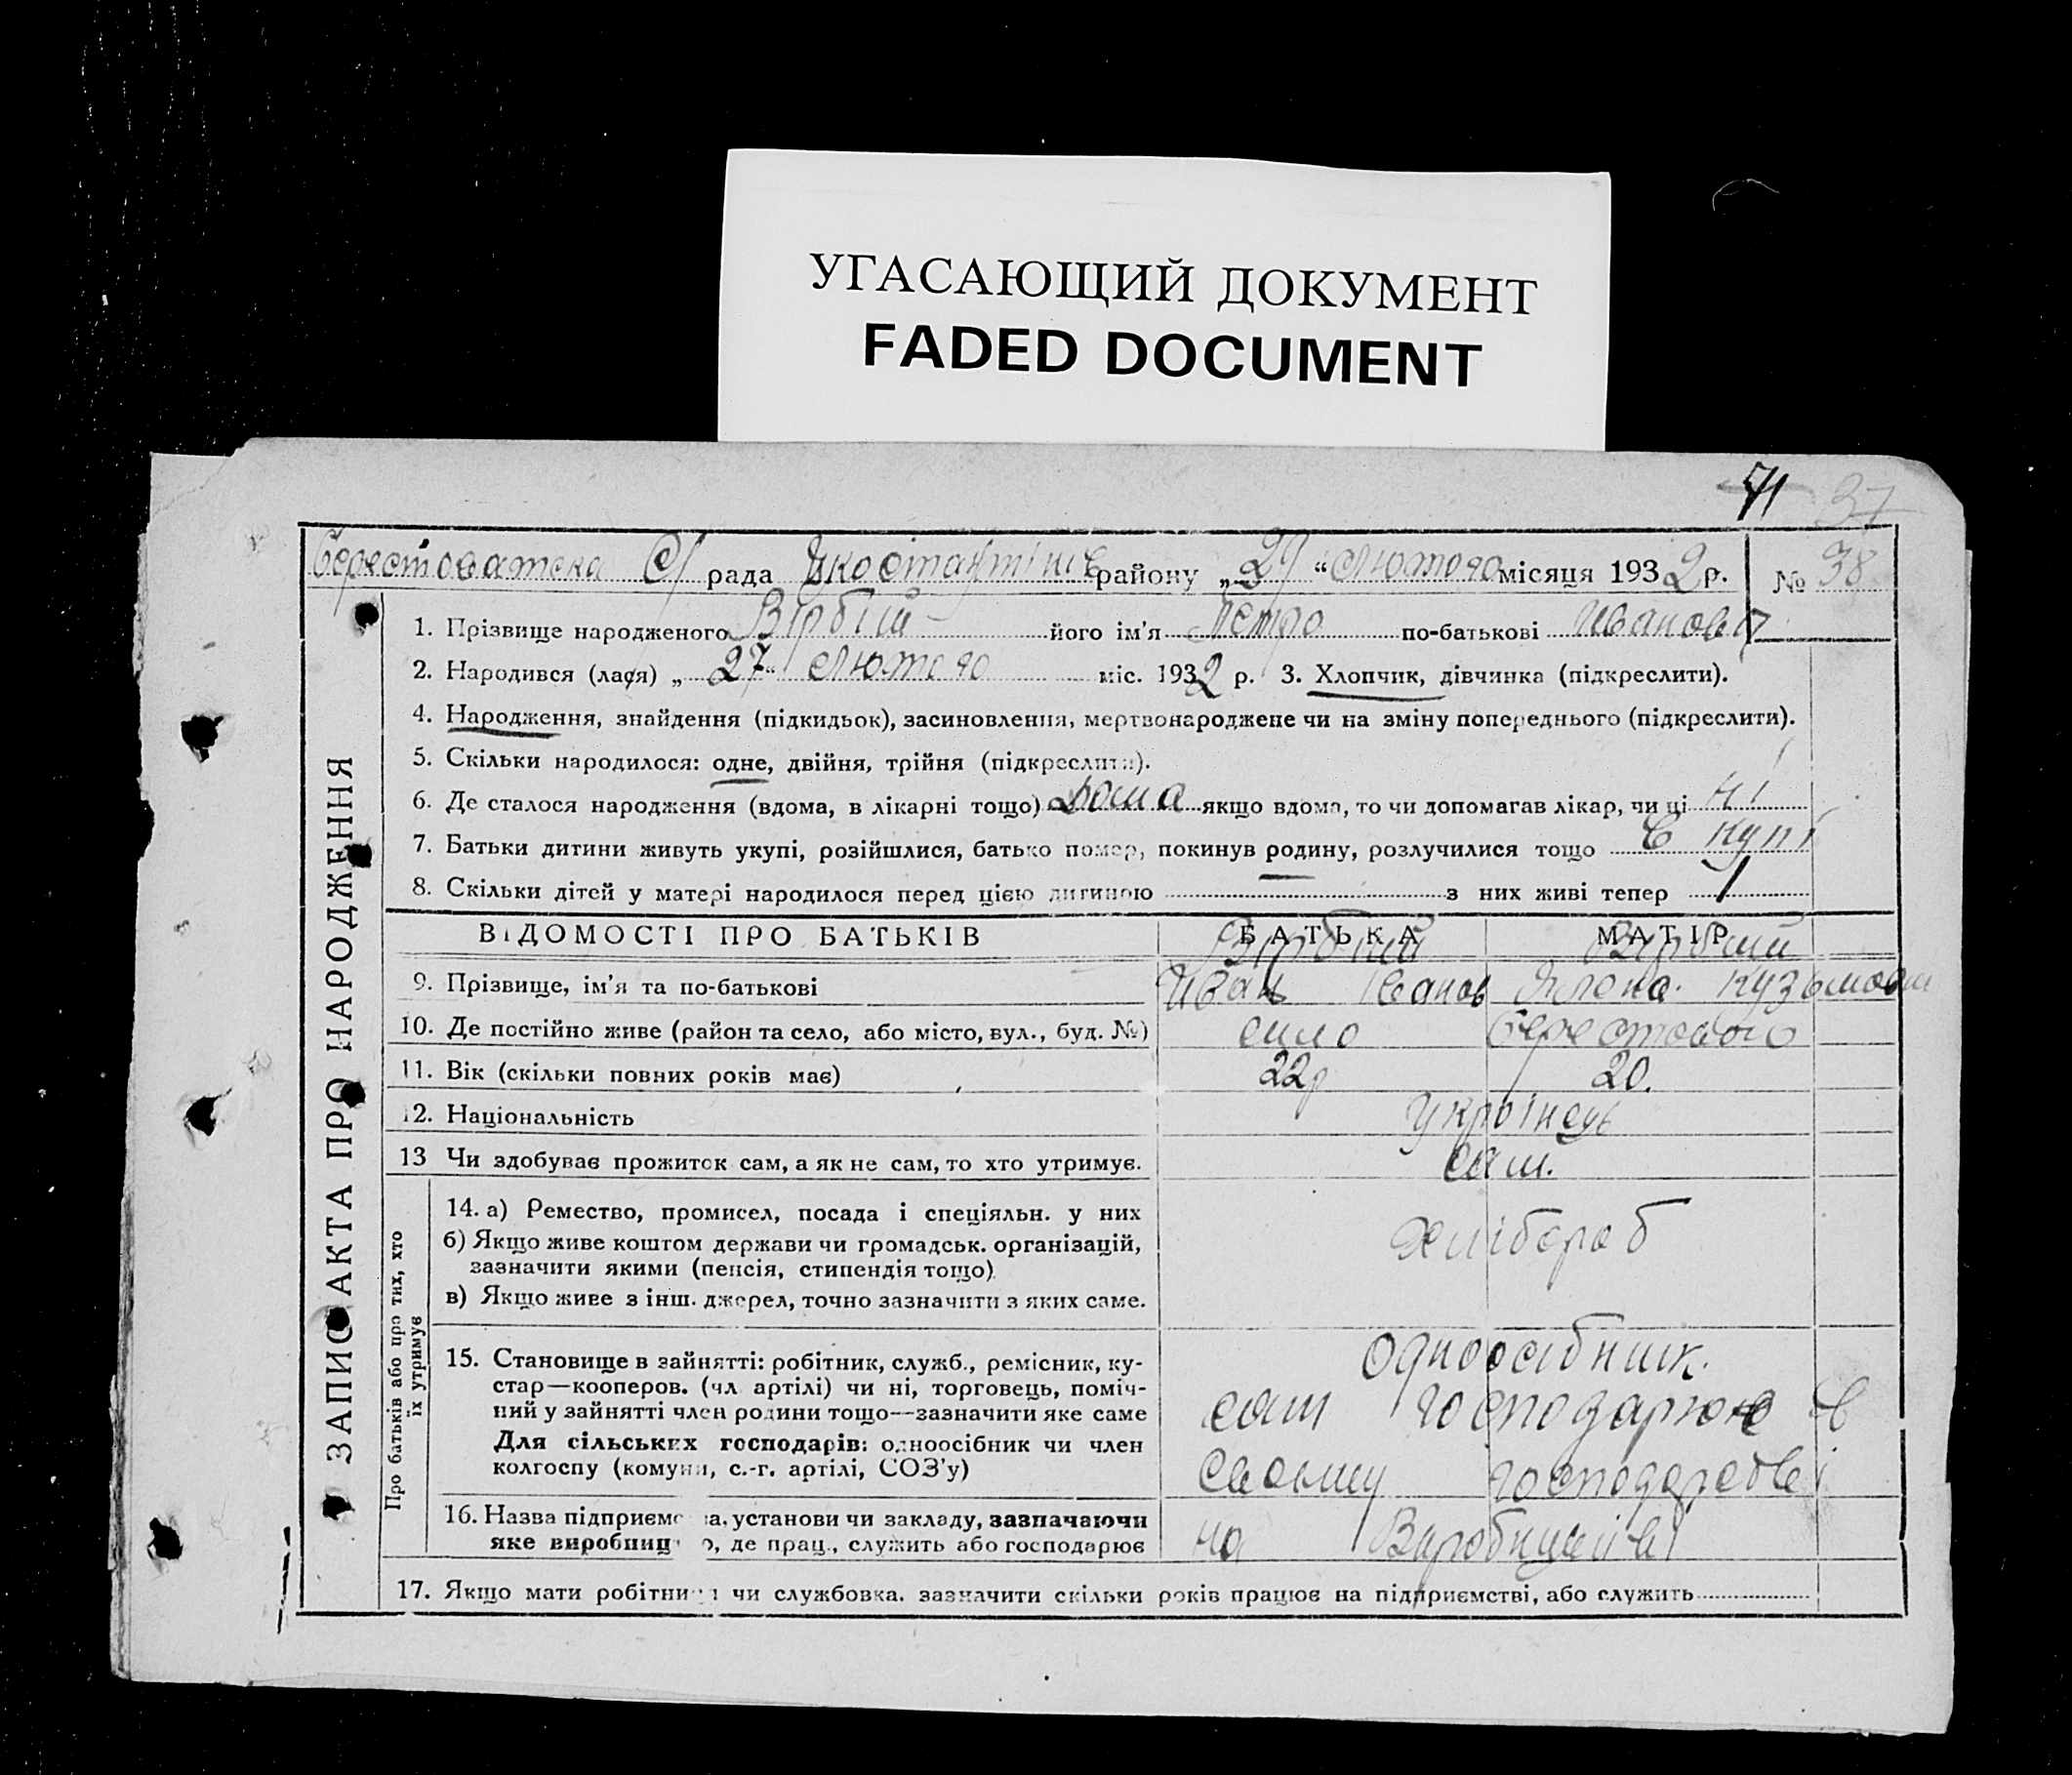 УГАСАЮЩИЙ ДОКУМЕНТ
FADED DOCUMENT
71 37
Берестоватска С/ рада району „29“ лютого місяця 1932 р. № 38
ЗАПИС АКТА ПРО НАРОДЖЕННЯ
1. Прізвище народженого Вірбій його ім'я Петро по-батькові Иванов
2. Народився (лася) „27“ лютого міс. 1932 р. 3. Хлопчик, дівчинка (підкреслити).
4. Народження, знайдення (підкидьок), засиновлення, мертвонароджене чи на зміну попереднього (підкреслити).
5. Скільки народилося: одне, двійня, трійня (підкреслити).
6. Де сталося народження (вдома, в лікарні тощо) дома якщо вдома, то чи допомагав лікар, чи ці ні
7. Батьки дитини живуть укупі, розійшлися, батько помер, покинув родину, розлучилися тощо в купі
8. Скільки дітей у матері народилося перед цією дитиною з них живі тепер 1
ВІДОМОСТІ ПРО БАТЬКІВ БАТЬКА МАТІР
Вірбий Вірбий
9. Прізвище, ім'я та по-батькові Иван Іванов Ялена Кузьмовн
10. Де постійно живе (район та село, або місто, вул., буд. №) село Берестового
11. Вік (скільки повних років має) 22р 20.
12. Національність Українець
13 Чи здобуває прожиток сам, а як не сам, то хто утримує. сам.
Про батьків або про тих, хто їх утримує
14. а) Ремество, промисел, посада і спеціяльн. у них
б) Якщо живе коштом держави чи громадськ. організацій,
зазначити якими (пенсія, стипендія тощо)
в) Якщо живе з інш. джерел, точно зазначити з яких саме.
Хлібороб
15. Становище в зайнятті: робітник, служб., ремісник, ку-
стар—кооперов. (чл. артілі) чи ні, торговець, поміч-
ний у зайнятті член родини тощо—зазначити яке саме
Для сільських господарів: одноосібник чи член
колгоспу (комуни, с.-г. артілі, СОЗ'у)
Одноосібник.
сам господарює в
Своьму господарстві
16. Назва підприємс ва, установи чи закладу, зазначаючи
яке виробниц о, де прац., служить або господарює
на Виробництві
17. Якщо мати робітниця чи службовка. зазначити скільки років працює на підприємстві, або служить